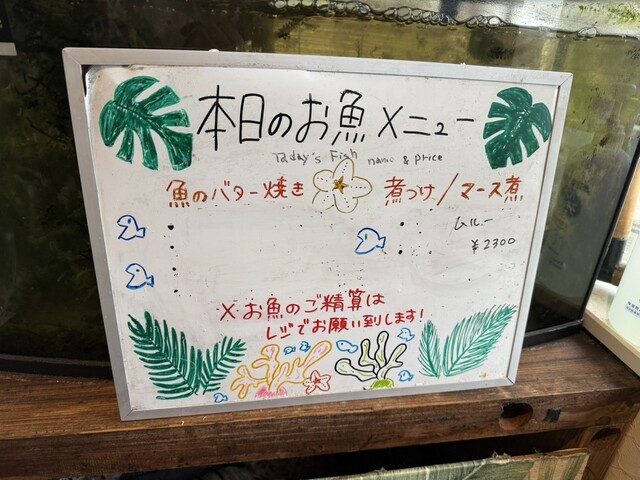 本日のお魚メニュー
Today's Fish name & price
魚のバター焼き
煮つけ/マース煮
ムルー
¥2300
※お魚のご精算は
レジでお願い到します!